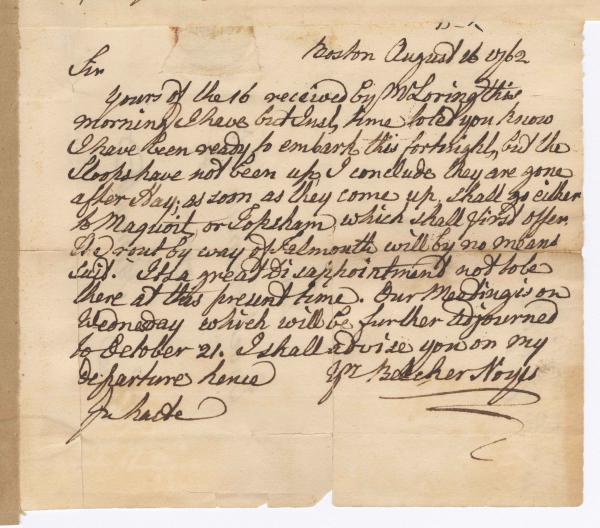 Boston August 16 1762
Sir
Yours of the 16 received by Mr Loring this
morning I have but Just time to let you know
I have been ready to embark this fortnight, but the
Sloops have not been up, I conclude they are gone
after Hay; as soon as they come up, shall go either
to Maquoit, or Topsham, which shall first offer.
The rout by way of Falmouth will by no means
suit. Its a great disappointment not to be
there at this present time. Our Meeting is on
Wedneday which will be further adjourned
to October 21. I shall advise you on my
departure hence Yr Belcher Noyes
In haste